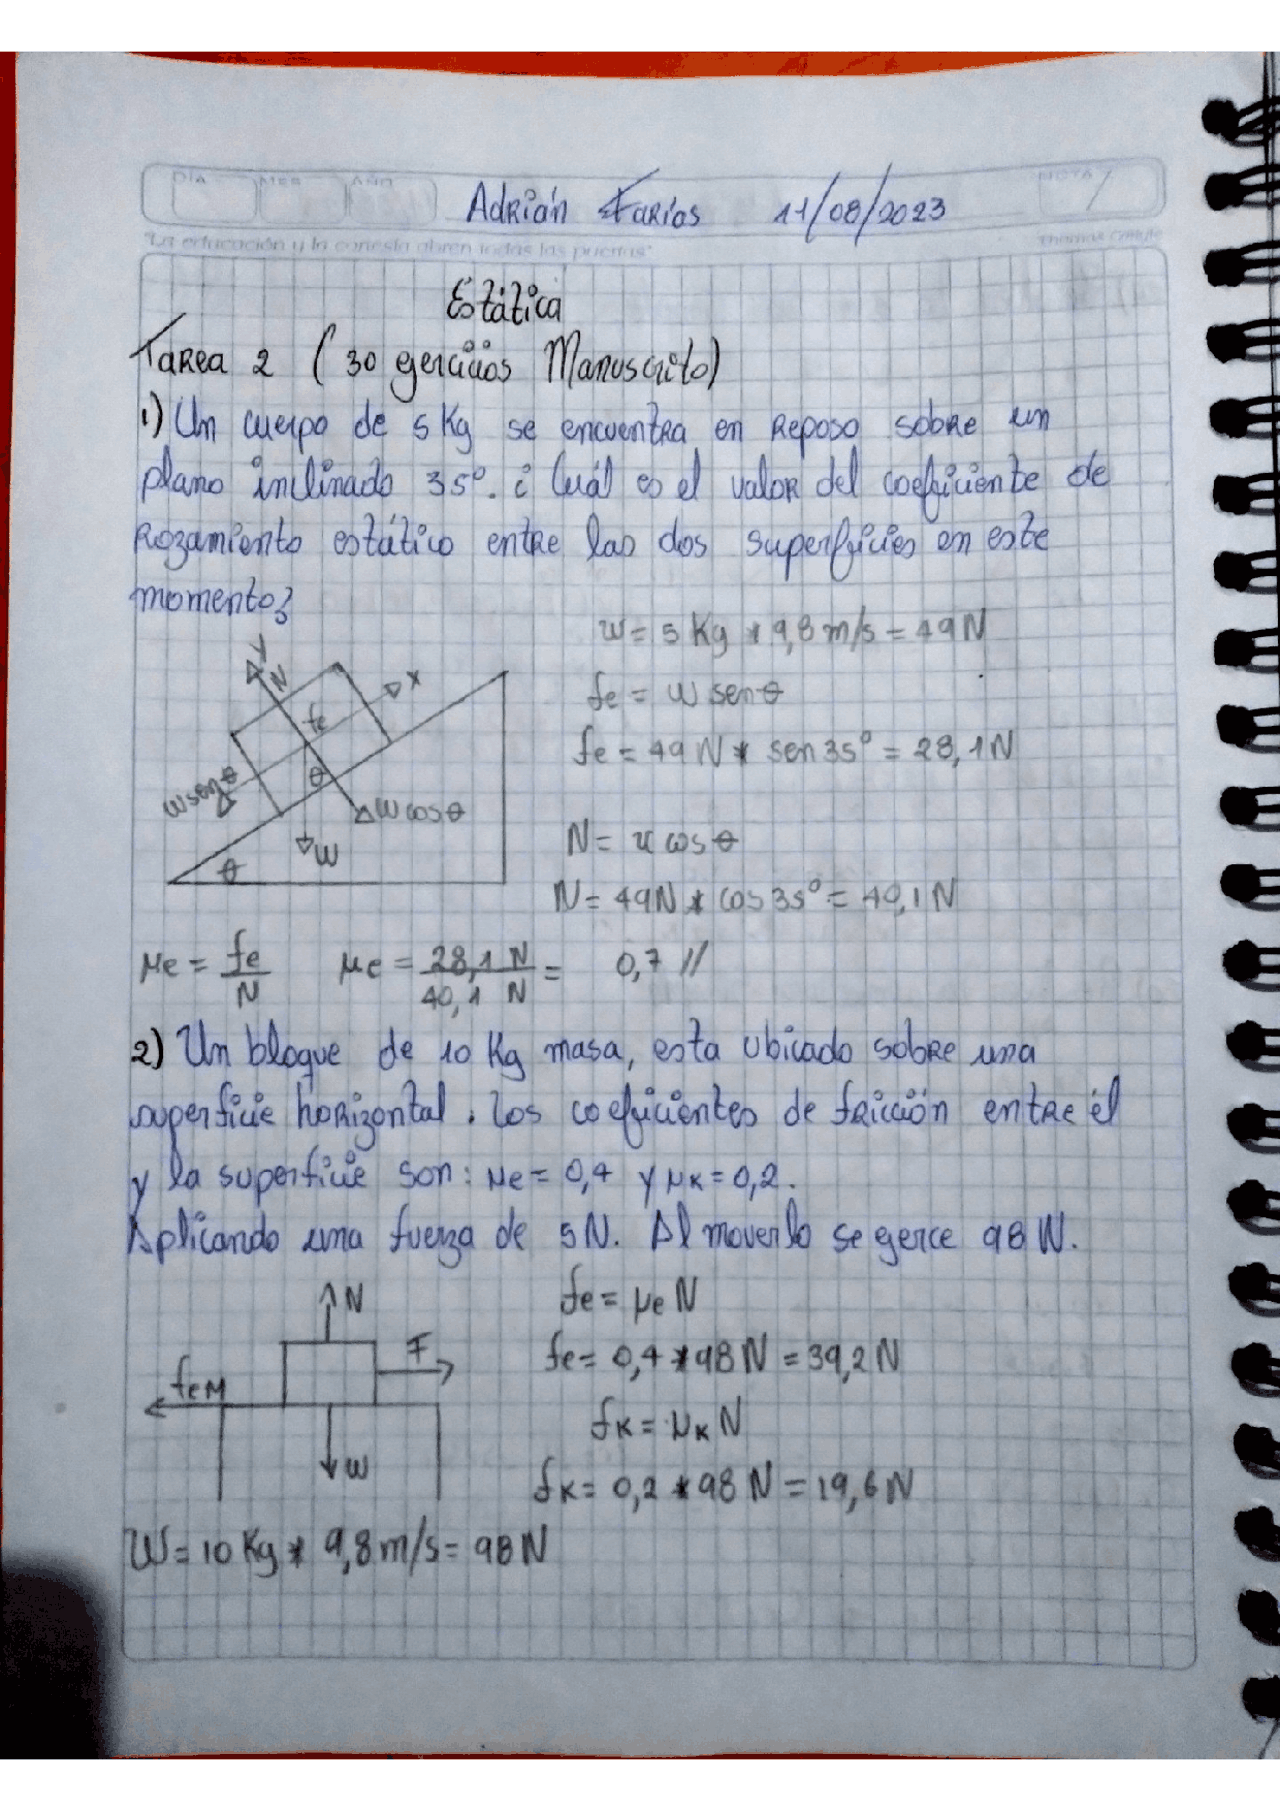 DÍA MES AÑO NOTA
Adrián Farias 11/08/2023
"La educación y la cortesía abren todas las puertas"
Estática
Tarea 2 (30 gercicios Manuscrito)
1) Un cuerpo de 5 Kg se encuentra en Reposo sobre un
plano inclinado 35°. ¿Cuál es el valor del coeficiente de
Rozamiento estático entre las dos superficies en este
momento?
W = 5 Kg * 9,8 m/s = 49 N
fe = W senθ
fe = 49 N * sen 35° = 28,1 N
N = W cosθ
N = 49N * cos 35° = 40,1 N
y
N
x
fe
θ
W senθ
W cosθ
W
θ
μe = fe/N μe = 28,1 N/40,1 N = 0,7 //
2) Un bloque de 10 Kg masa, esta ubicado sobre una
superficie horizontal. Los coeficientes de fricción entre él
y la superficie son: μe = 0,4 y μk = 0,2.
Aplicando una fuerza de 5N. Al moverlo se gerce 98 W.
N
F
feM
W
fe = μe N
fe = 0,4 * 98 N = 39,2 N
fk = μk N
fk = 0,2 * 98 N = 19,6 N
W = 10 Kg * 9,8 m/s = 98 N